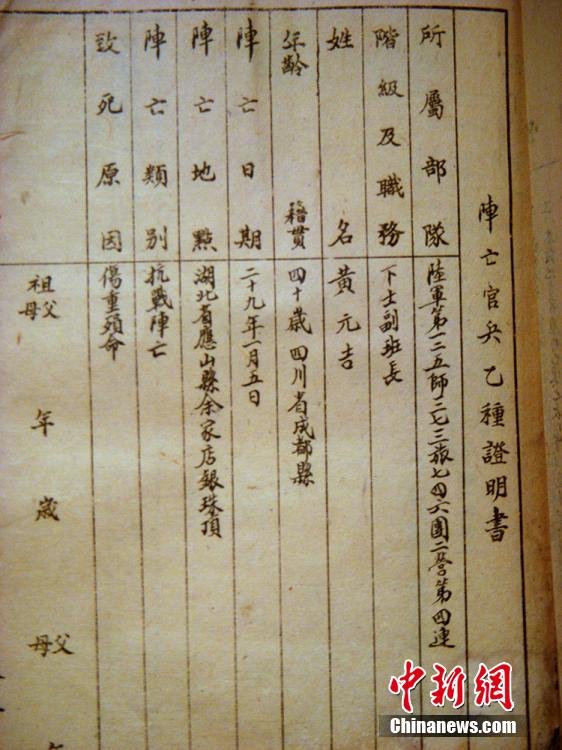 陣亡官兵乙種證明書
所屬部隊 陸軍第一二五師三七三旅七四六團二營第四連
階級及職務 下士副班長
姓名 黃元吉
年齡 籍貫 四十歲 四川省成都縣
陣亡日期 二十九年一月五日
陣亡地點 湖北省應山縣余家店銀珠頂
陣亡類別 抗戰陣亡
致死原因 傷重殞命
祖父母 年 歲
父母
中新網
Chinanews.com